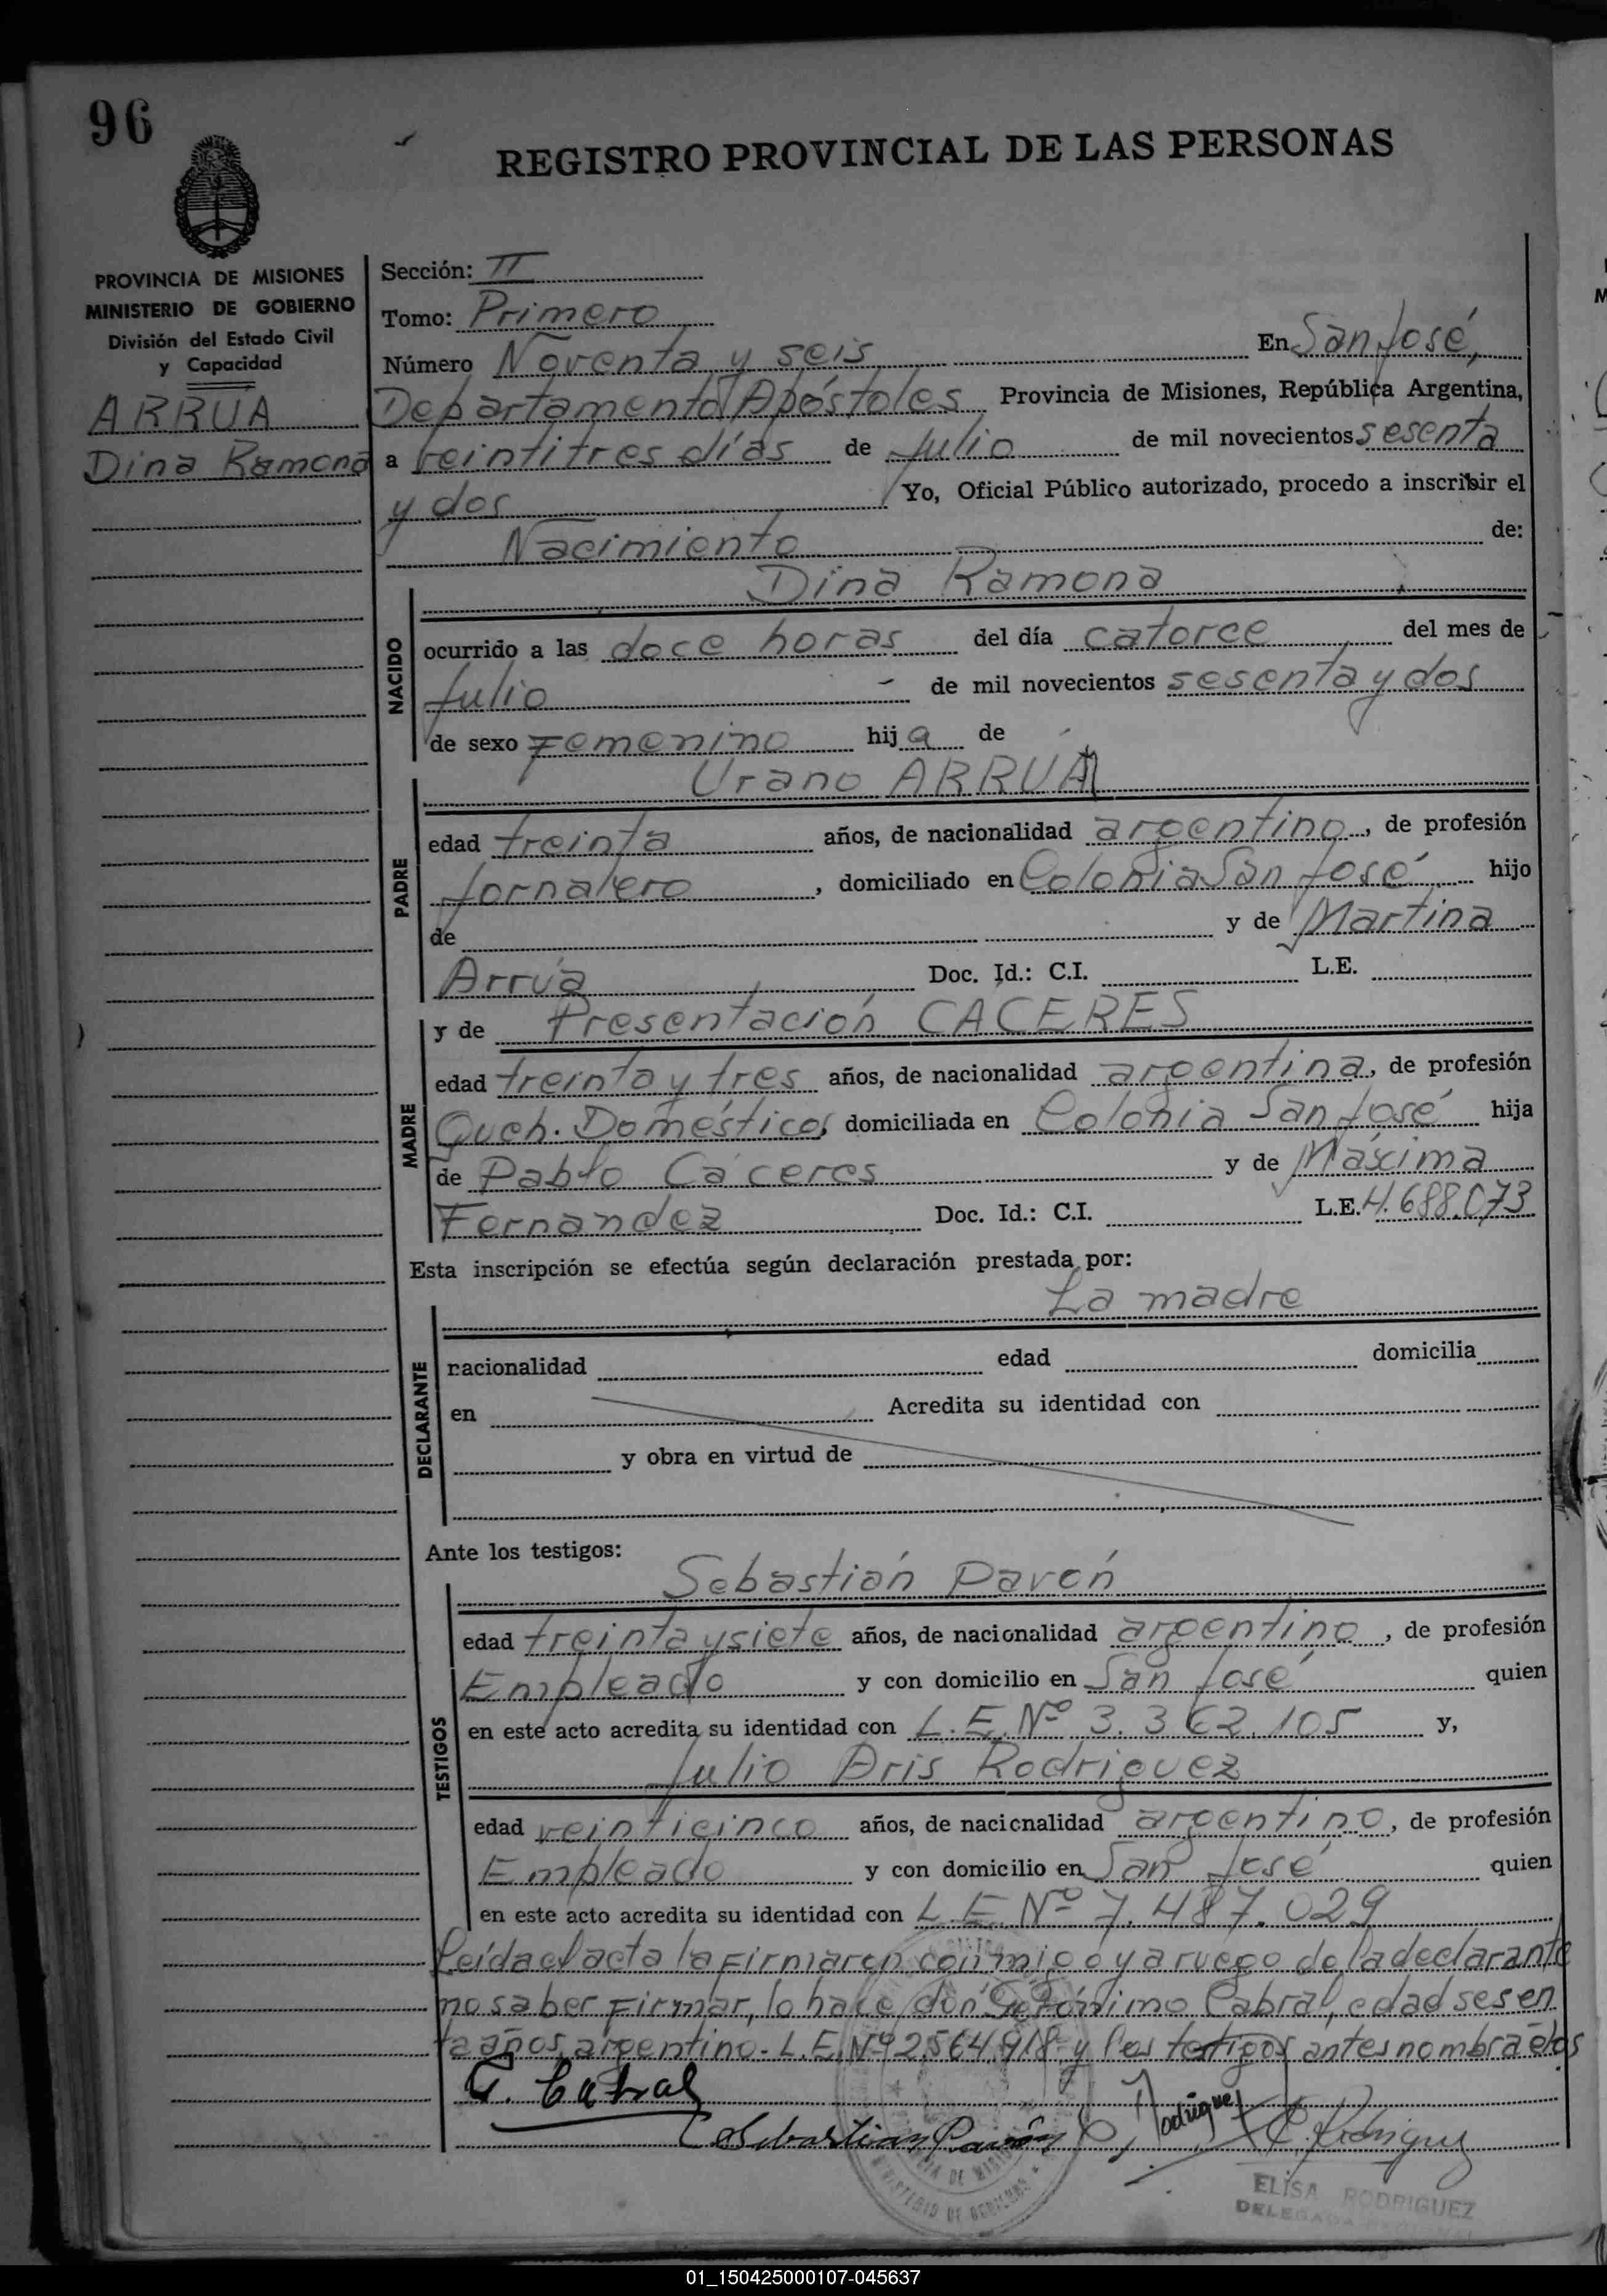 96
REGISTRO PROVINCIAL DE LAS PERSONAS
PROVINCIA DE MISIONES
MINISTERIO DE GOBIERNO
División del Estado Civil
y Capacidad
ARRUA
Dina Ramona
Sección: II
Tomo: Primero
Número Noventa y seis En San José,
Departamento Apóstoles Provincia de Misiones, República Argentina,
a veintitres días de Julio de mil novecientos sesenta
y dos Yo, Oficial Público autorizado, procedo a inscribir el
Nacimiento de:
Dina Ramona
NACIDO
ocurrido a las doce horas del día catorce del mes de
Julio de mil novecientos sesenta y dos
de sexo Femenino hija de
Urano ARRUA
PADRE
edad treinta años, de nacionalidad argentino, de profesión
Jornalero, domiciliado en Colonia San José hijo
de y de Martina
Arrúa Doc. Id.: C.I. L.E.
MADRE
y de Presentación CACERES
edad treinta y tres años, de nacionalidad argentina, de profesión
Queh. Domésticos domiciliada en Colonia San José hija
de Pablo Cáceres y de Máxima
Fernandez Doc. Id.: C.I. L.E. 4.688.073
Esta inscripción se efectúa según declaración prestada por:
La madre
DECLARANTE
nacionalidad edad domicilia
en Acredita su identidad con
y obra en virtud de
Ante los testigos:
Sebastián Pavón
TESTIGOS
edad treinta y siete años, de nacionalidad argentino, de profesión
Empleado y con domicilio en San José quien
en este acto acredita su identidad con L.E. Nº 3.362.105 y,
Julio Aris Rodriguez
edad veinticinco años, de nacionalidad argentino, de profesión
Empleado y con domicilio en San José quien
en este acto acredita su identidad con L.E. Nº 7.487.029
Leída el acta la firmaron conmigo y a ruego de la declarante
no saber firmar, lo hace don Gerónimo Cabral, edad sesen
ta años, argentino. L.E. Nº 2.564.918 y los testigos antes nombrados
G. Cabral
Sebastián Pavón Rodriguez Rodriguez
ELISA RODRIGUEZ
DELEGADA
01_150425000107-045637